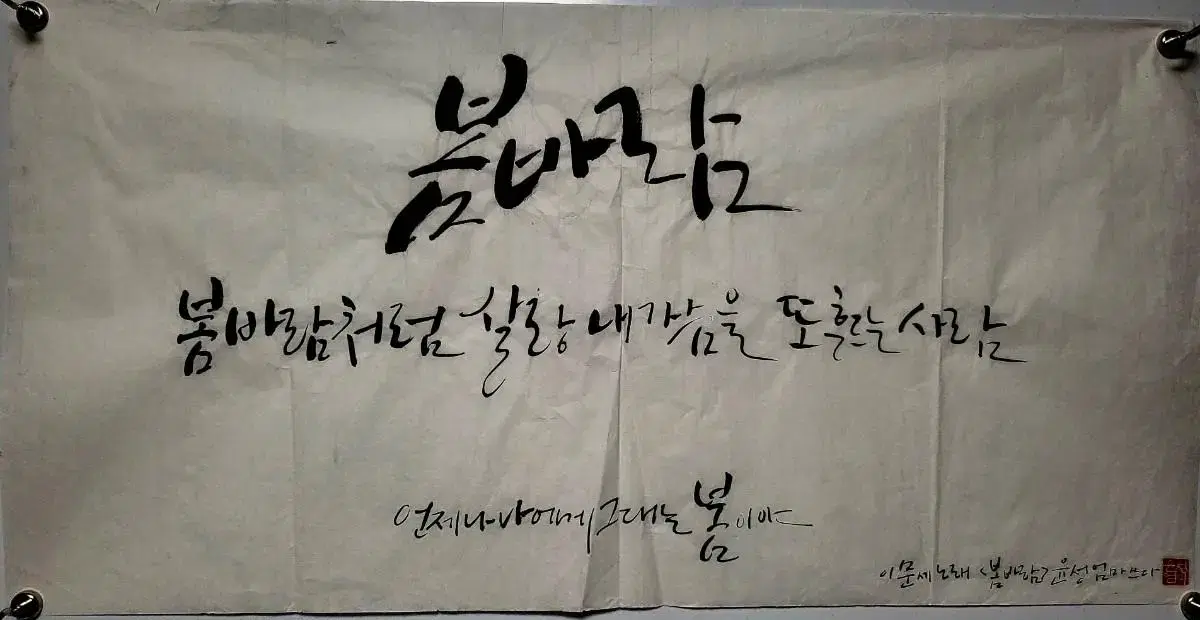 봄바람
봄바람처럼 살랑 내 가슴을 또 흔드는 사람
언제나 나에게 그대는 봄이야
이문세 노래 <봄바람> 윤성엄마 쓰다